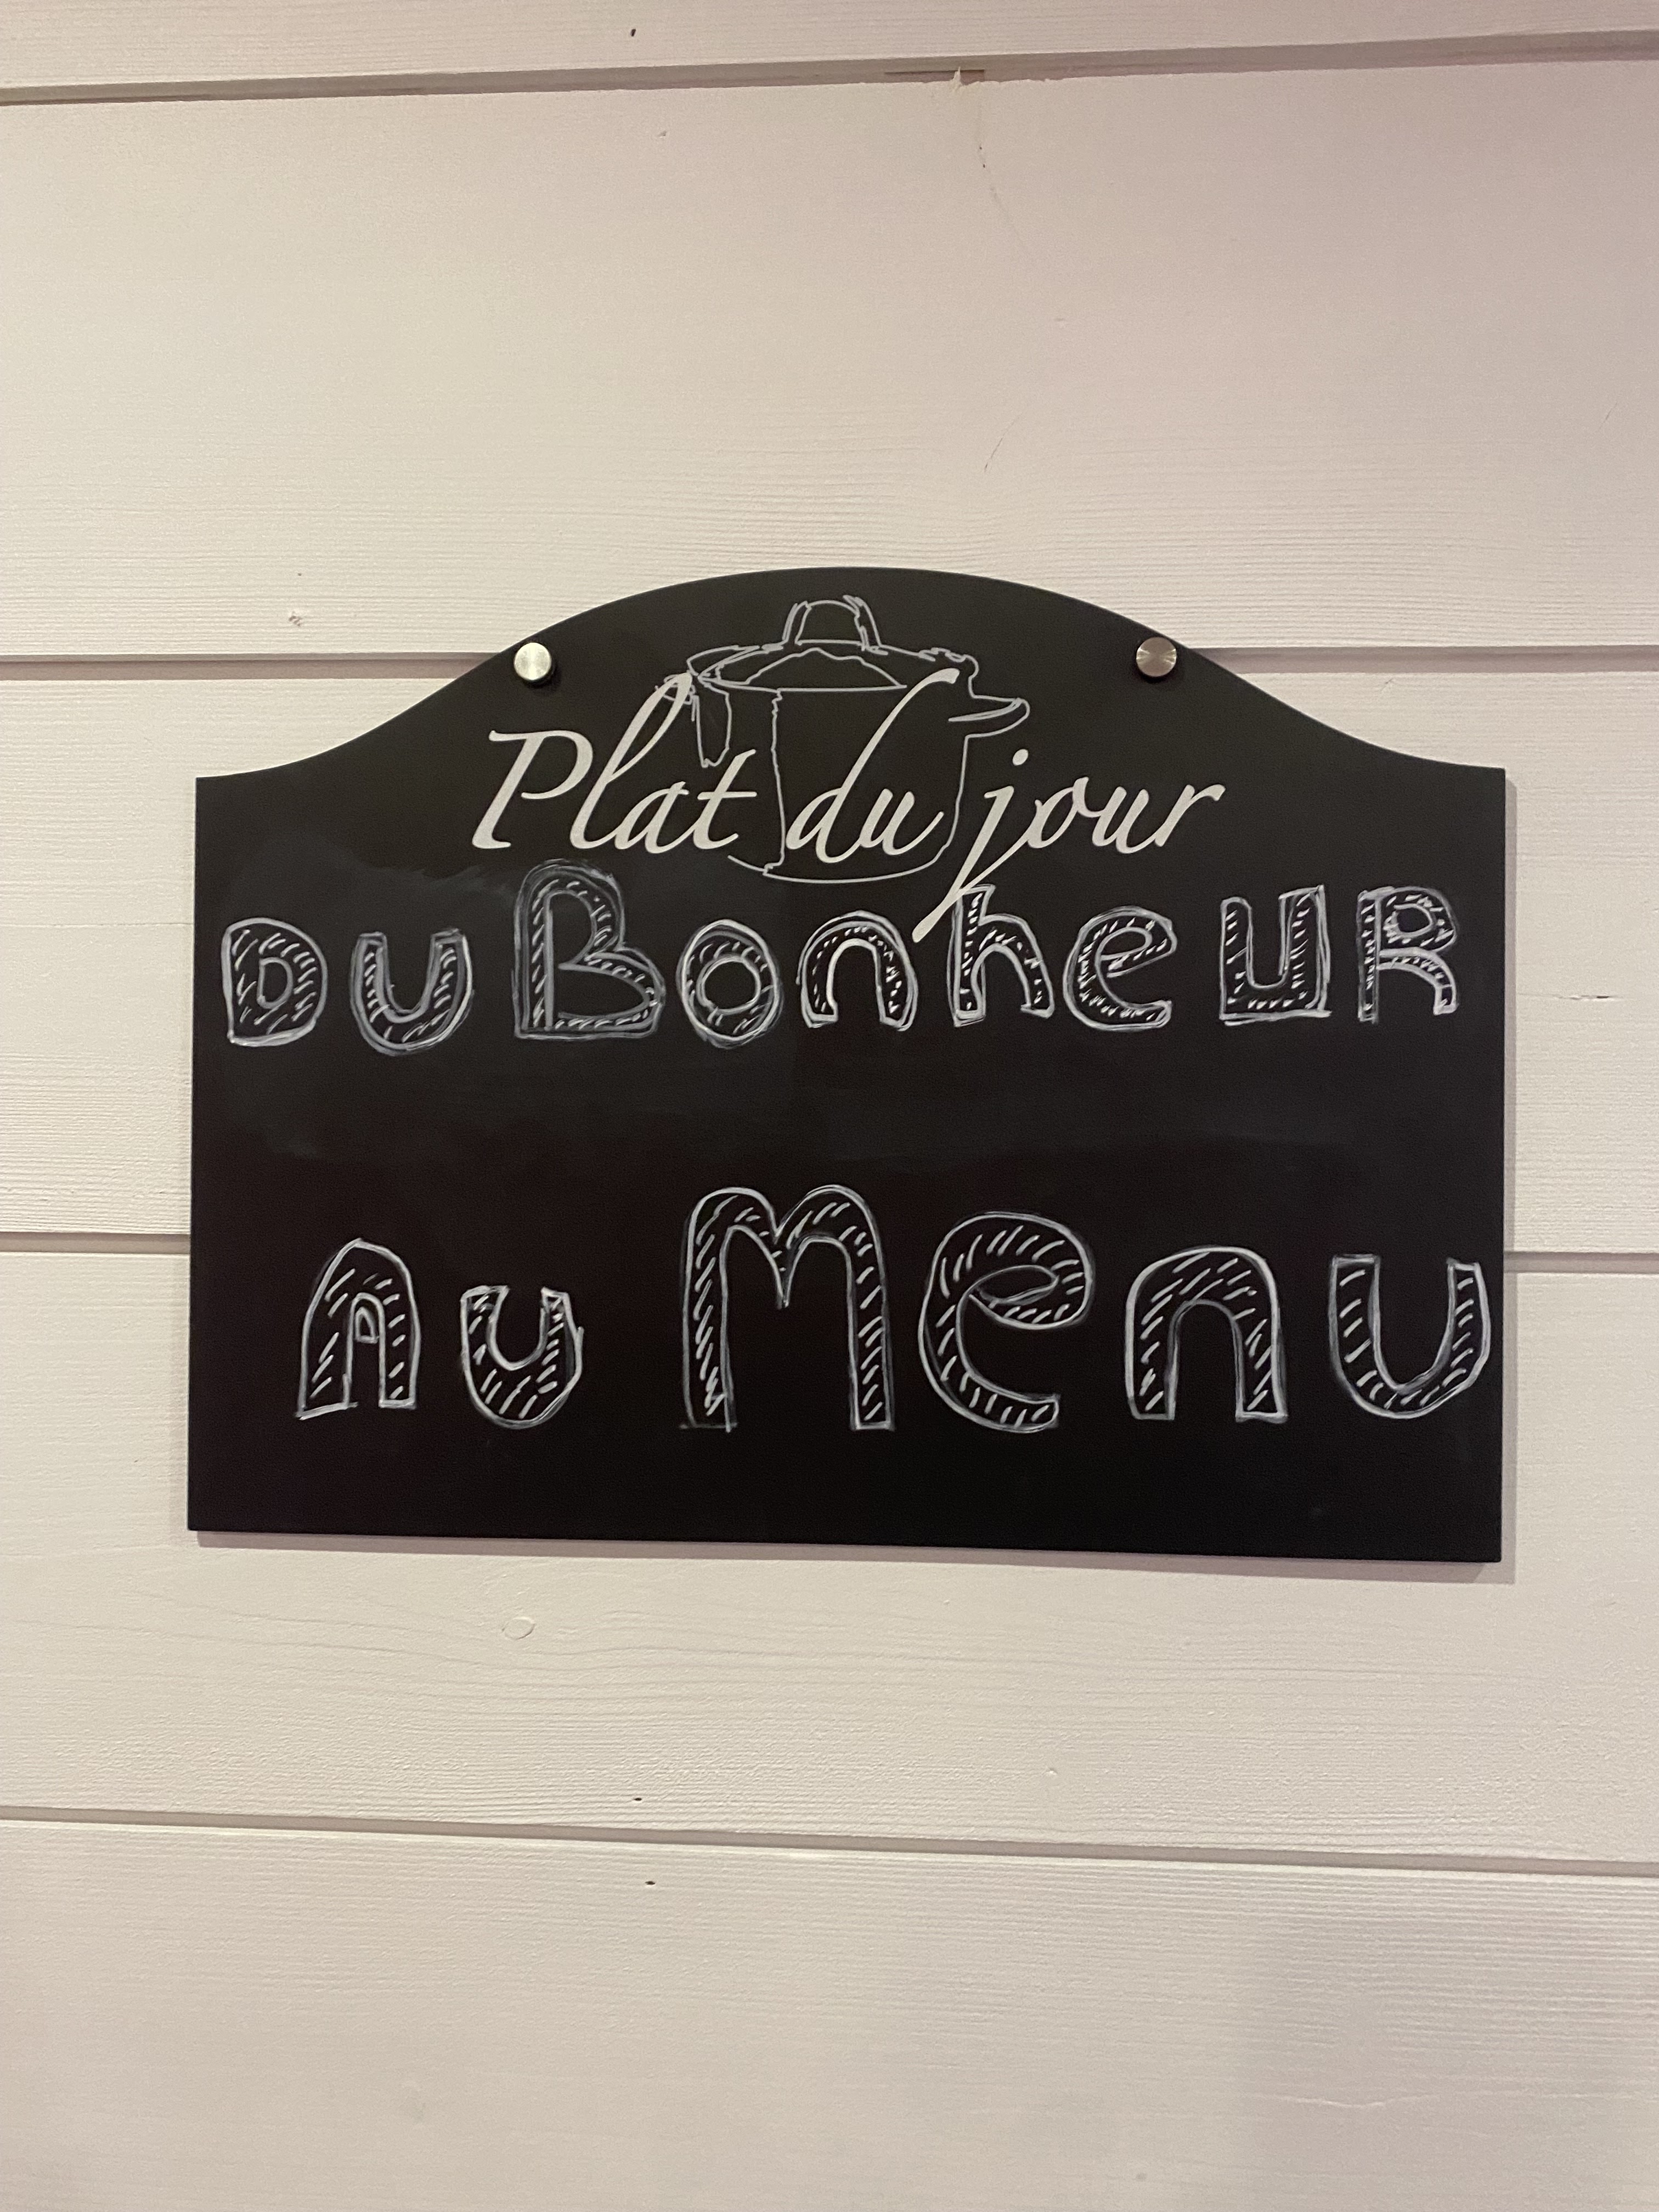 Plat du jour
Du BonheuR
Au Menu